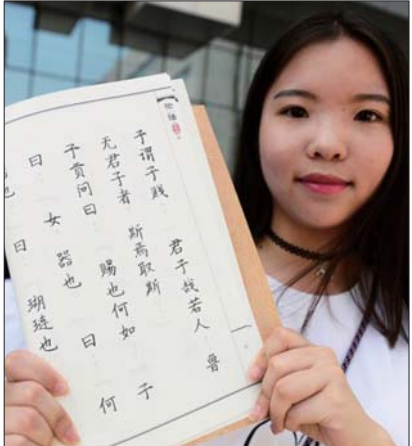 论语
子谓子贱 君子哉若人 鲁
无君子者 斯焉取斯
子贡问曰 赐也何如 子
曰 女 器也 曰 何
也 曰 瑚琏也